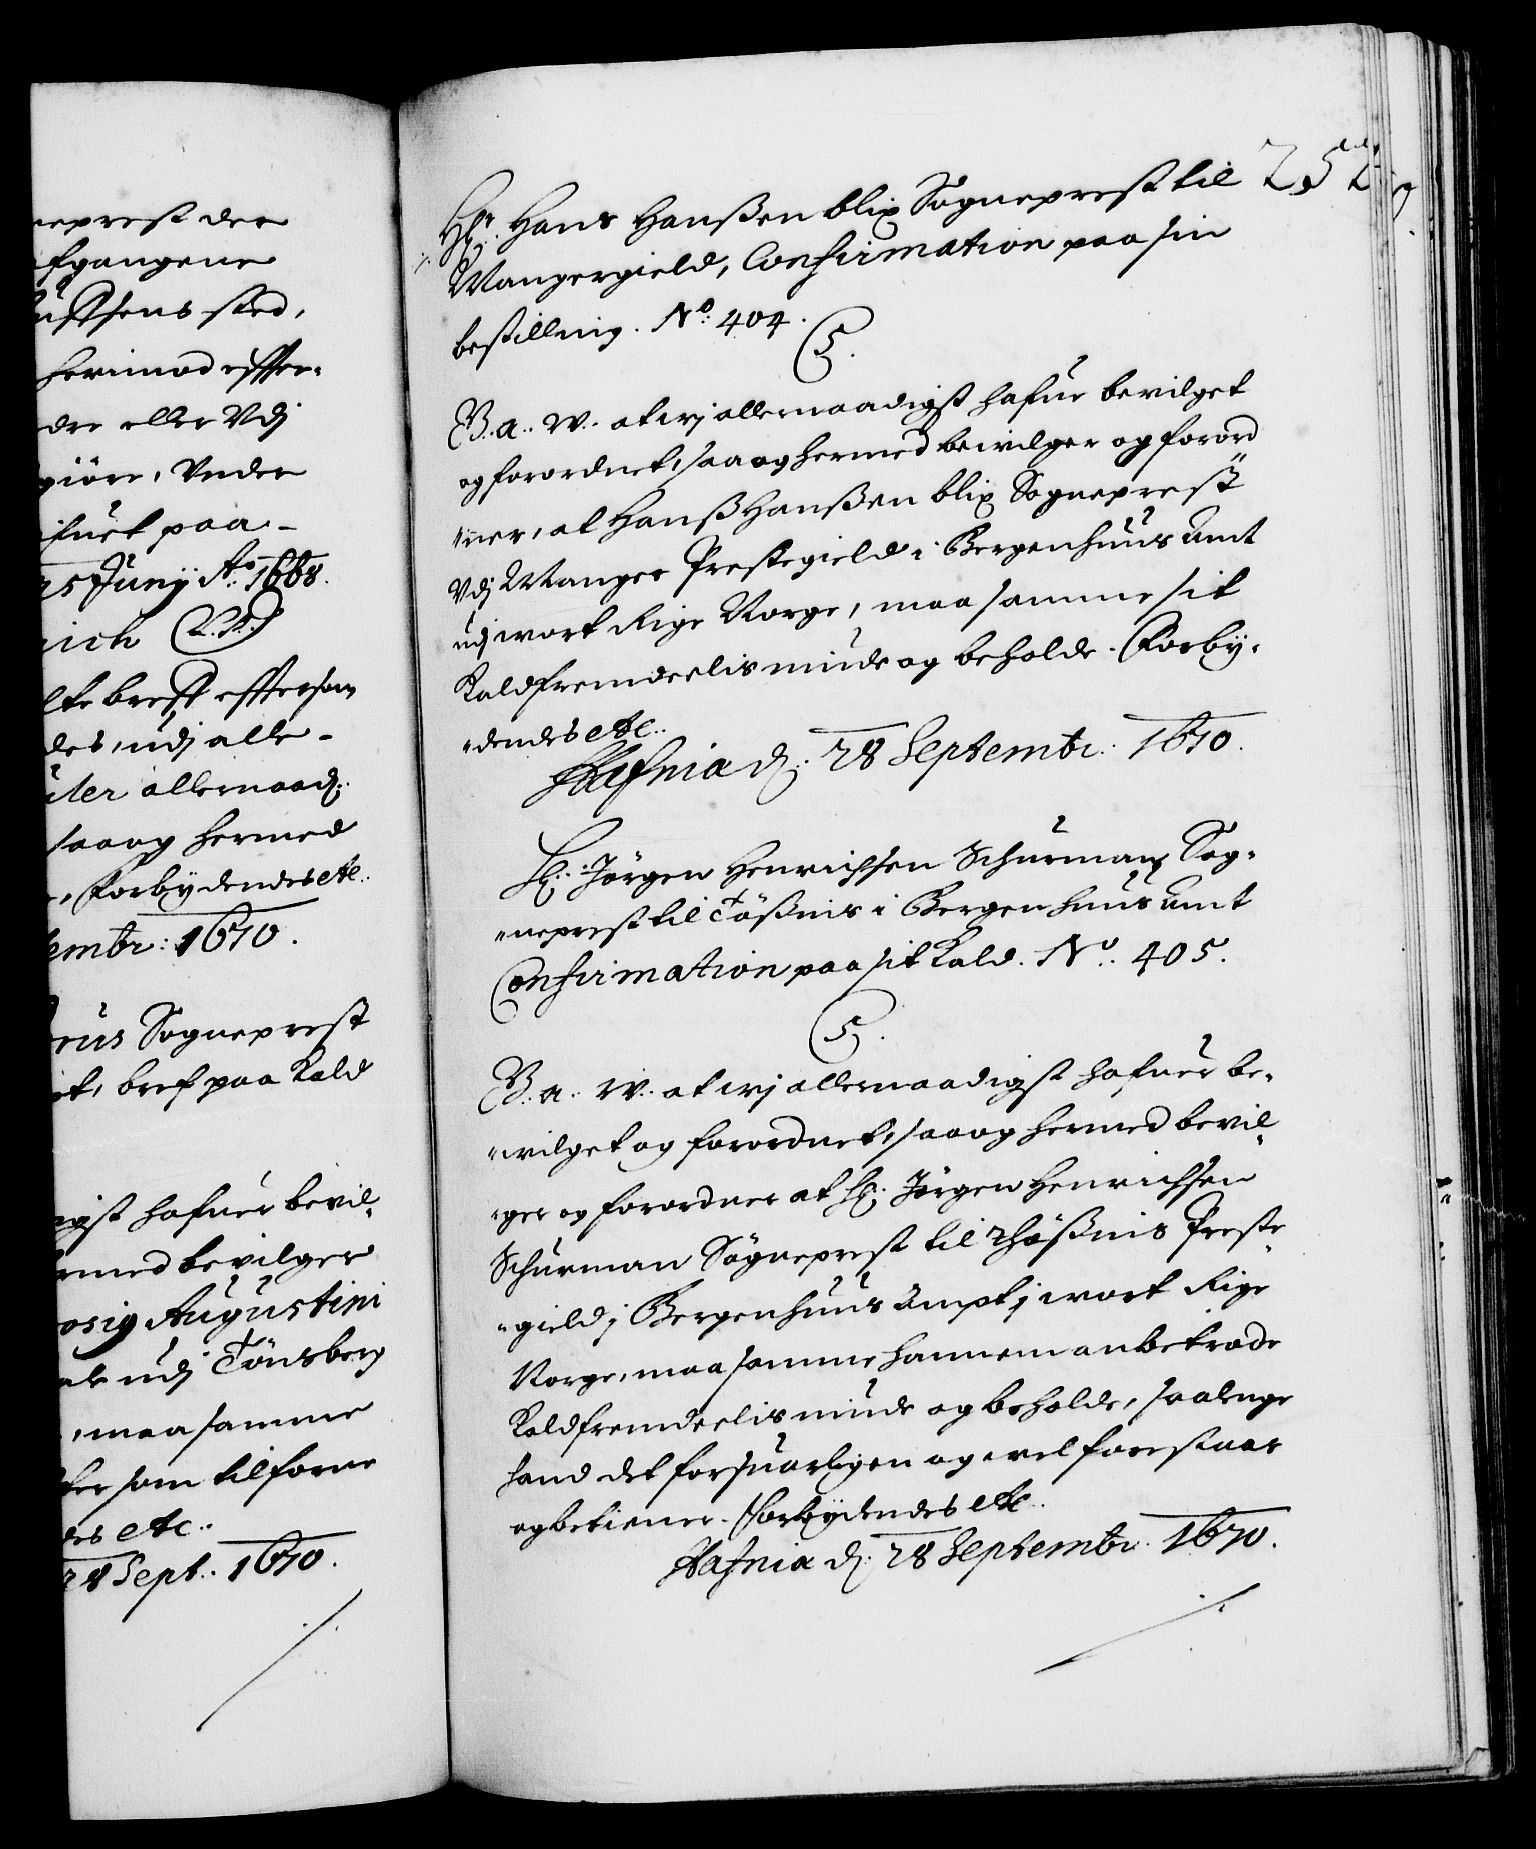 neprest der
fgangene
uffsens sted,
herimod effter-
dre eller Vdj
giöre, Vnder
ifuet paa -
25 Junij Ao. 1668.
rich (L.S.)
lte breff effterson
des, udj alle-
iter allernaad:
saaog hermed
, Forbydendes etc..
tembr: 1670.
reus Sogneprest
it, bref paa Kald
igst hafuer bevil„
rmed bevilger
osig Augustini
ale udj Tönsberg
, maa samme
ter som tilforne
des etc..
28 Sept.. 1670.
252
Hr: Hans Hanßen blix Sogneprest til
Mangergield, Confirmation paa sin
bestilling. No: 404.
C5.
V. a.. W.. at wj allernaadigst hafue bevilget
og forordnet, saaog hermed bewilger og forord„
„ner, at Hanß Hanßen blix Sogneprest
Vdj Manger Prestegield i Bergenhuus Amt
udj wort Rige Norge, maa samme sit
Kald fremdeelis niude og beholde. Forby-
„dendes etc..
Hafnia d. 28 Septembr.. 1670.
H: Jörgen Henrichsen Schurman, Sog-
„neprest til Tößnis i Bergenhuus Amt
Confirmation paa sit Kald. No.. 405.
C5.
V.. a.. W.. at wj allernaadigst hafuer be-
„wilget og forordnet, saaog hermed bevil„
„ger og forordner at H: Jörgen Henrichsen
Schurman Sogneprest til Thößnis Preste„
„gield j Bergenhuus Ampt j wort Rige
Norge, maa samme hannem anbetrode
Kald fremdeelis niude og beholde, saalenge
hand det forsuarligen og wel forestaar
og betiener. Forbydendes etc..
Hafnia d: 28 Septembr. 1670.